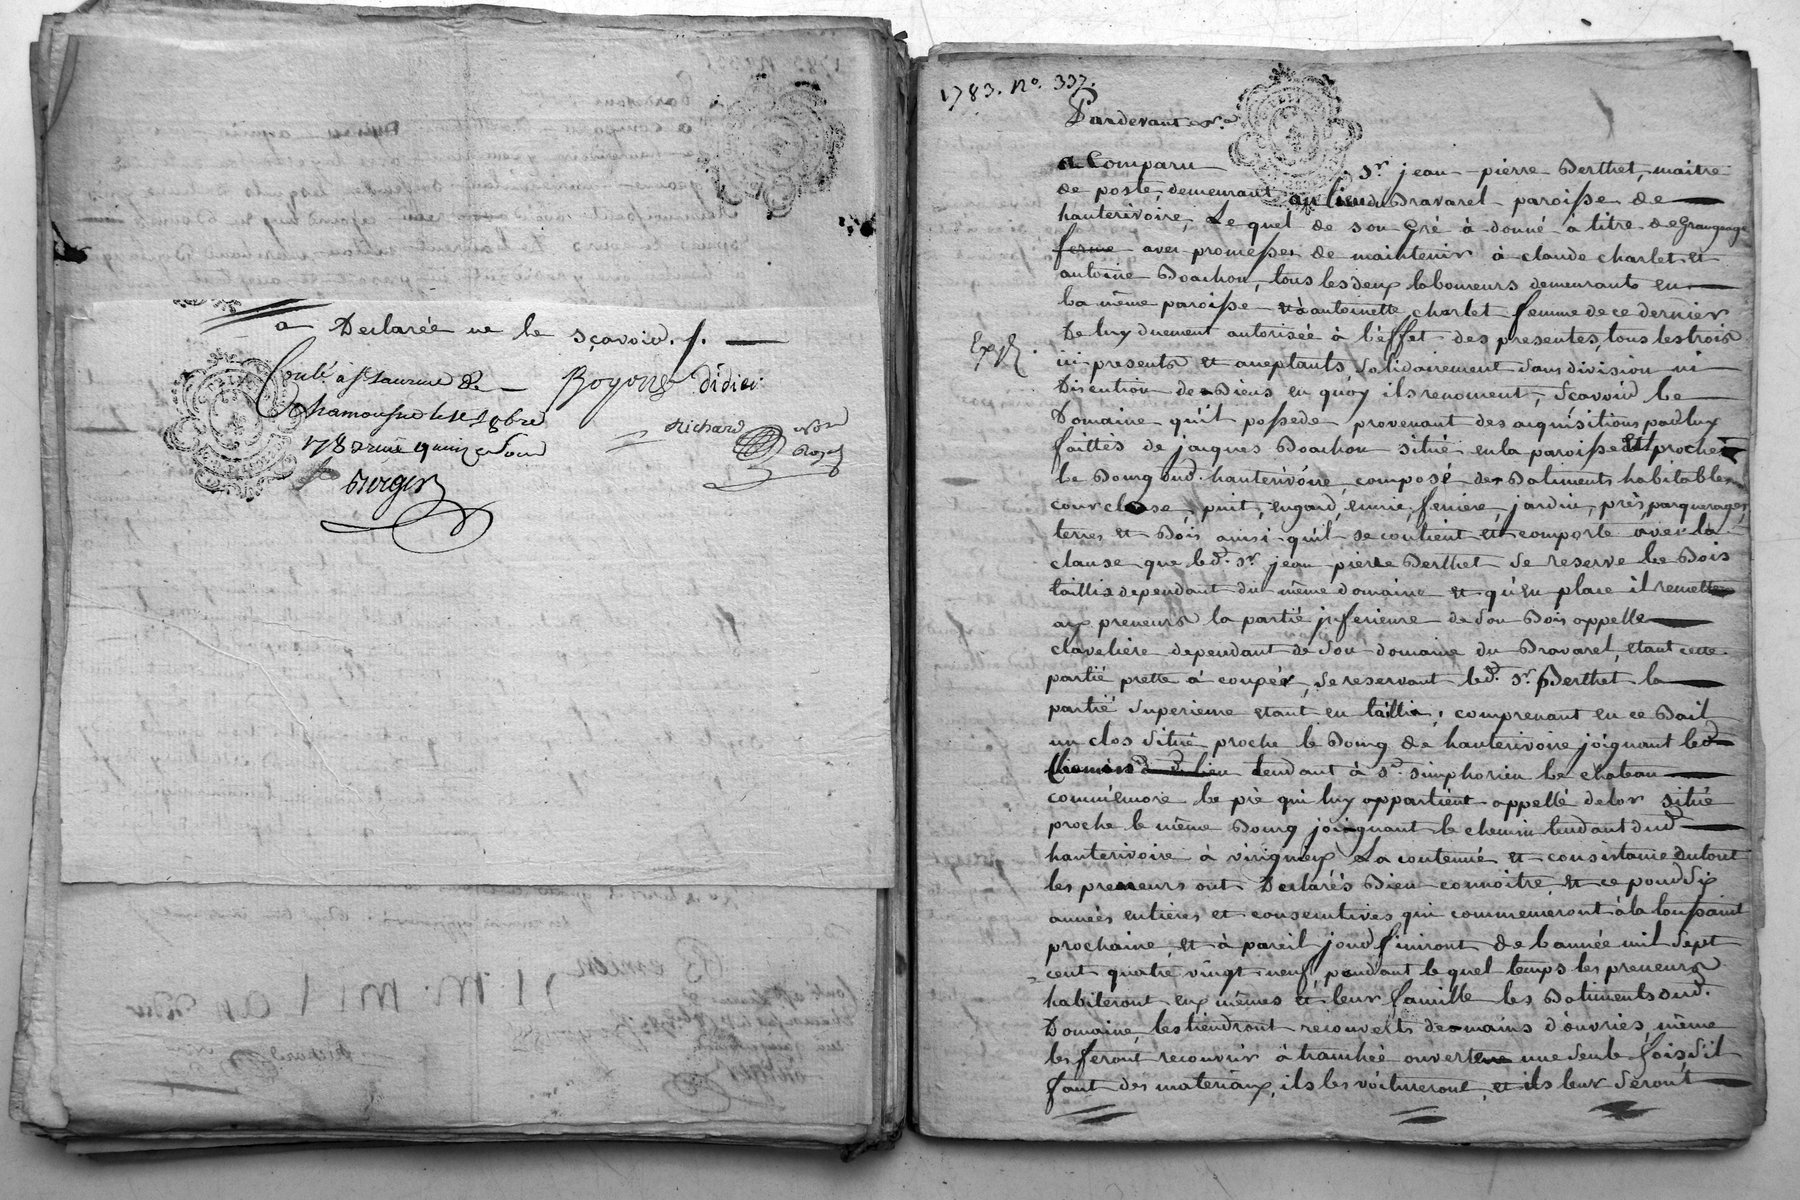 a Declarée ne le sçavoir ./.
Conlé. a St Laurine de
Royons didier
Chamousse le 11 8bre
Richard
1783
Burgin
1783. N.o 337.
Pardevant
a Comparu Sr. jean - pierre Berthet, maitre
de poste, demeurant au lieu du Bravaret paroisse de
hauterivoire, Le quel de son Gré à donné à titre de Grangeage
ferme avec promesses de maintenir à claude charlet et
antoine Boachon, tous les deux laboureurs demeurants en
la même paroisse et à antoinette charlet femme de ce dernier
De luy duement autorisée à l'éffet des presentes, tous les trois
Exp.
ici presents et aceptants solidairement sans division ni
Discution de Biens en quoy ils renoncent, Scavoir le
Domaine qu'il possede provenant des acquisitions par luy
faittes de jacques Boachon situé en la paroisse et proche
le Bourg dud. hauterivoire, composé de Batiments habitables
cour close, puit, engard, ecurie, feniere, jardin, près, paquerages,
terres et Bois, ainsi qu'il se contient et comporte avec la
clause que led. Sr. jean pierre Berthet se reserve le Bois
taillis dependant du même domaine et qu'en place il remettra
aux preneurs la partié inferieure de son Bois appellé
claveliere dependant de son domaine du Bravaret, etant cette
partié prette à coupér, se reservant led. Sr. Berthet la
partié superieure etant en taillis, comprenant en ce Bail
un clos situé proche le Bourg de hauterivoire joignant le
chemin dud. lieu tendant à St. simphorien le chateau
comme encore le pré qui luy appartient appellé delor situé
proche le même Bourg joignant le chemin tendant dud.
hauterivoire à virigneux La contenue et consistance du tout
les preneurs ont Declarés Bien connoitre, et ce pour six
années entières et consecutives qui commenceront à la toussaint
prochaine et à pareil jour finiront de l'année mil sept
cent quatre vingt neuf, pendant le quel temps les preneurs
habiteront eux mêmes et leur famille les Batiments dud.
Domaine, les tiendront recouverts de mains d'ouvriés, même
les feront recouvrir à tranchée ouverte une seule fois, s'il
faut des materiaux, ils les voitureront, et ils leur seront